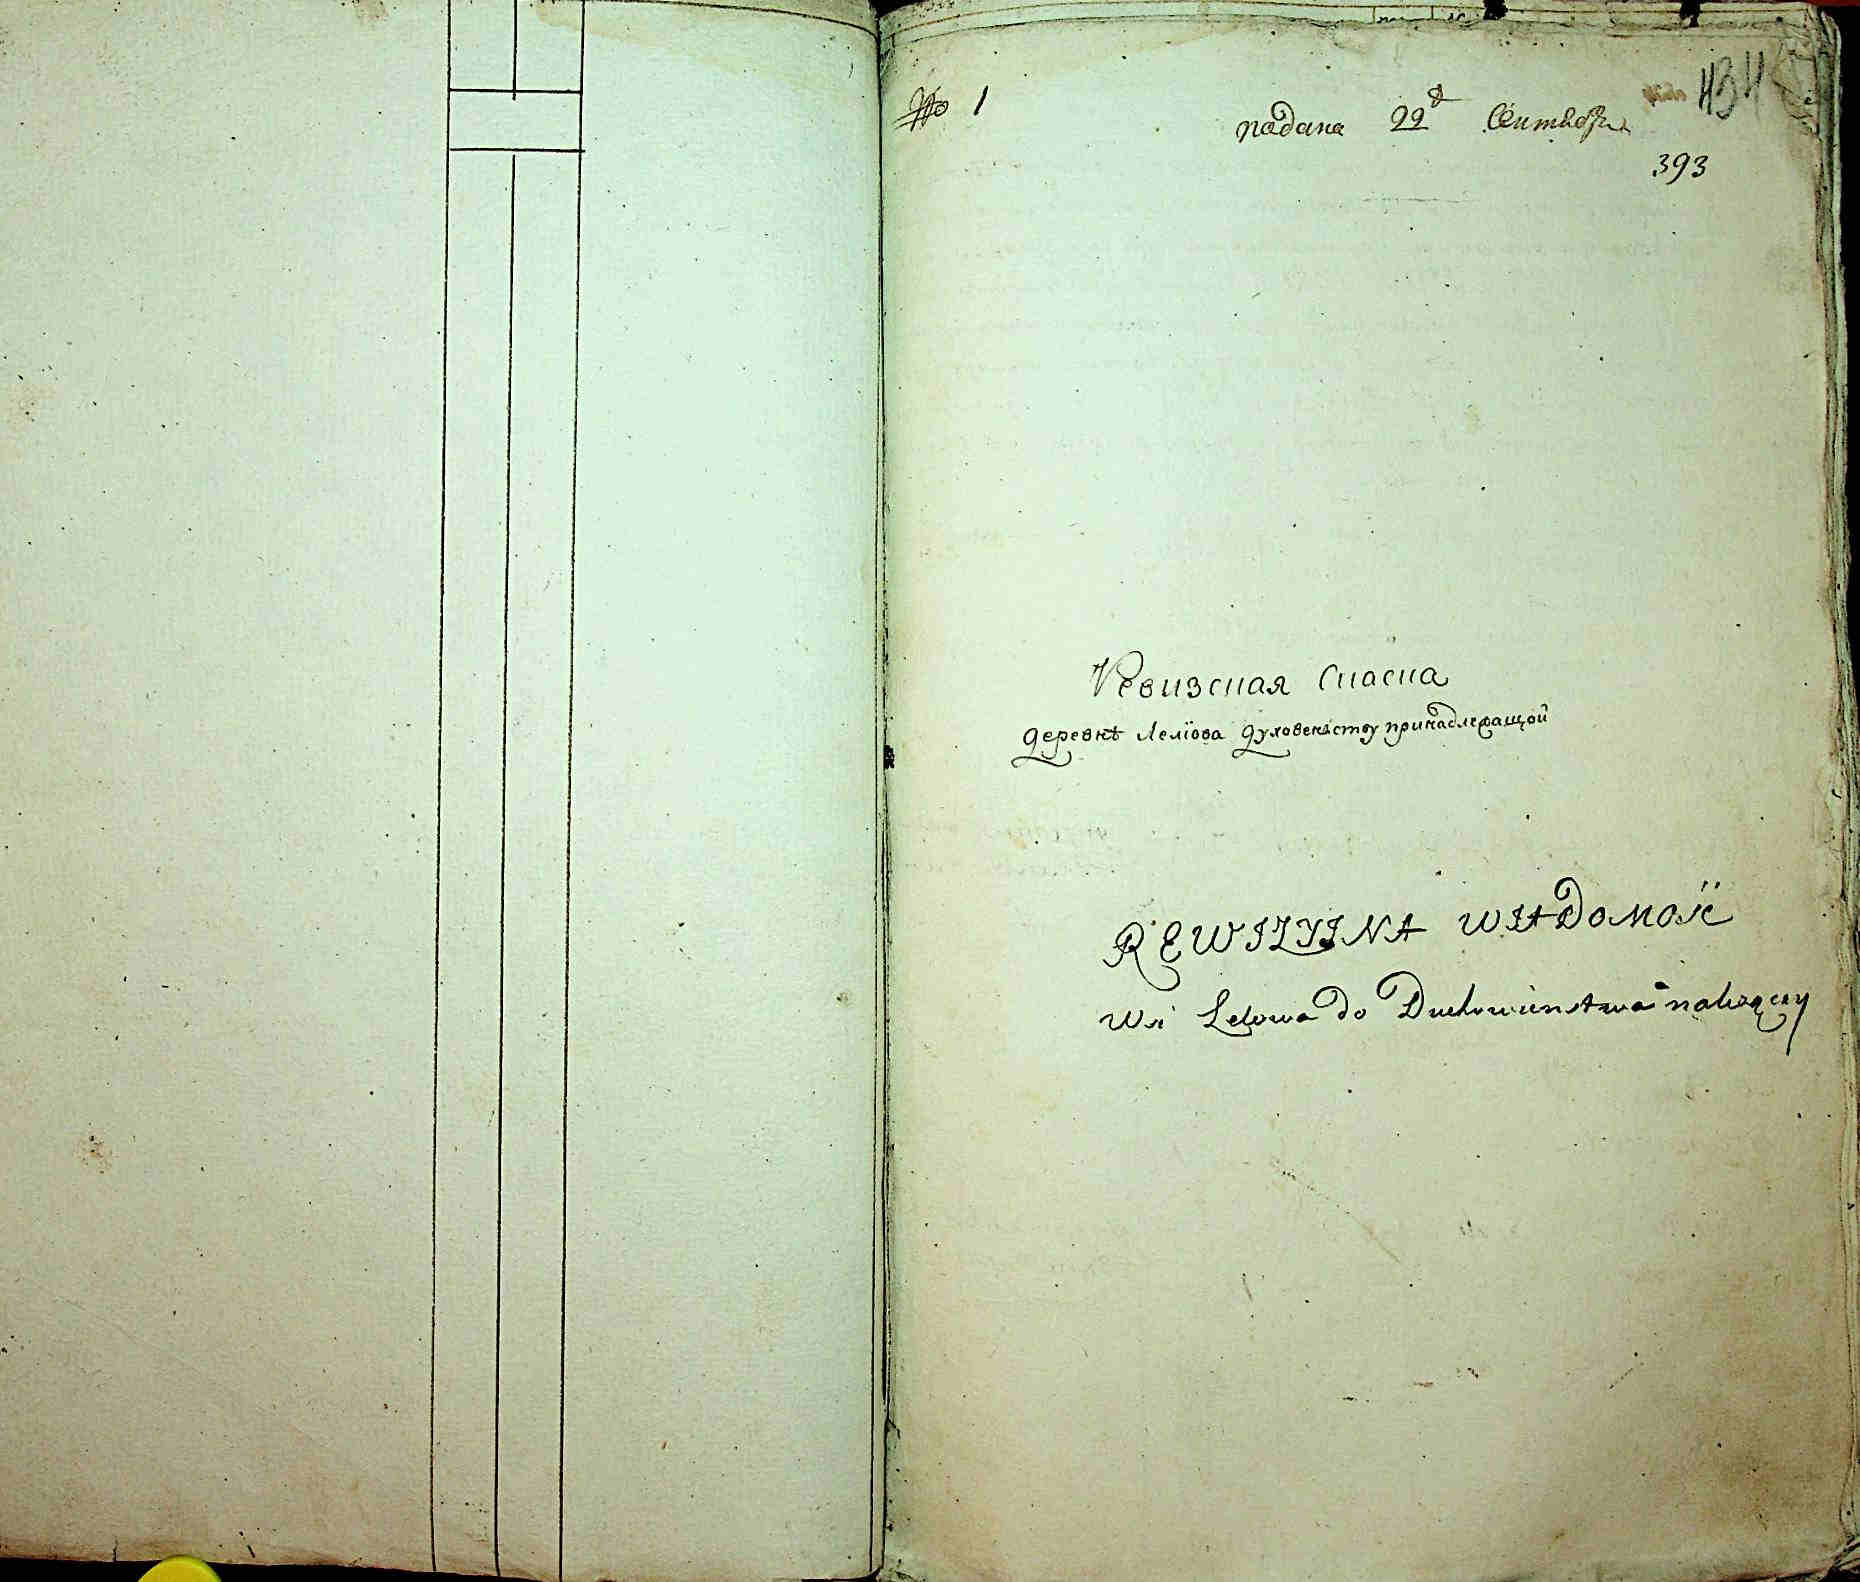 № 1
подана 22 д Сентября
434
393
Ревизская Скаска
деревнѣ Леліова духовенъству принадлежащой
REWIZYINA WIADOMOŚĆ
Wsi Lelowa do Duchowieństwa należącey